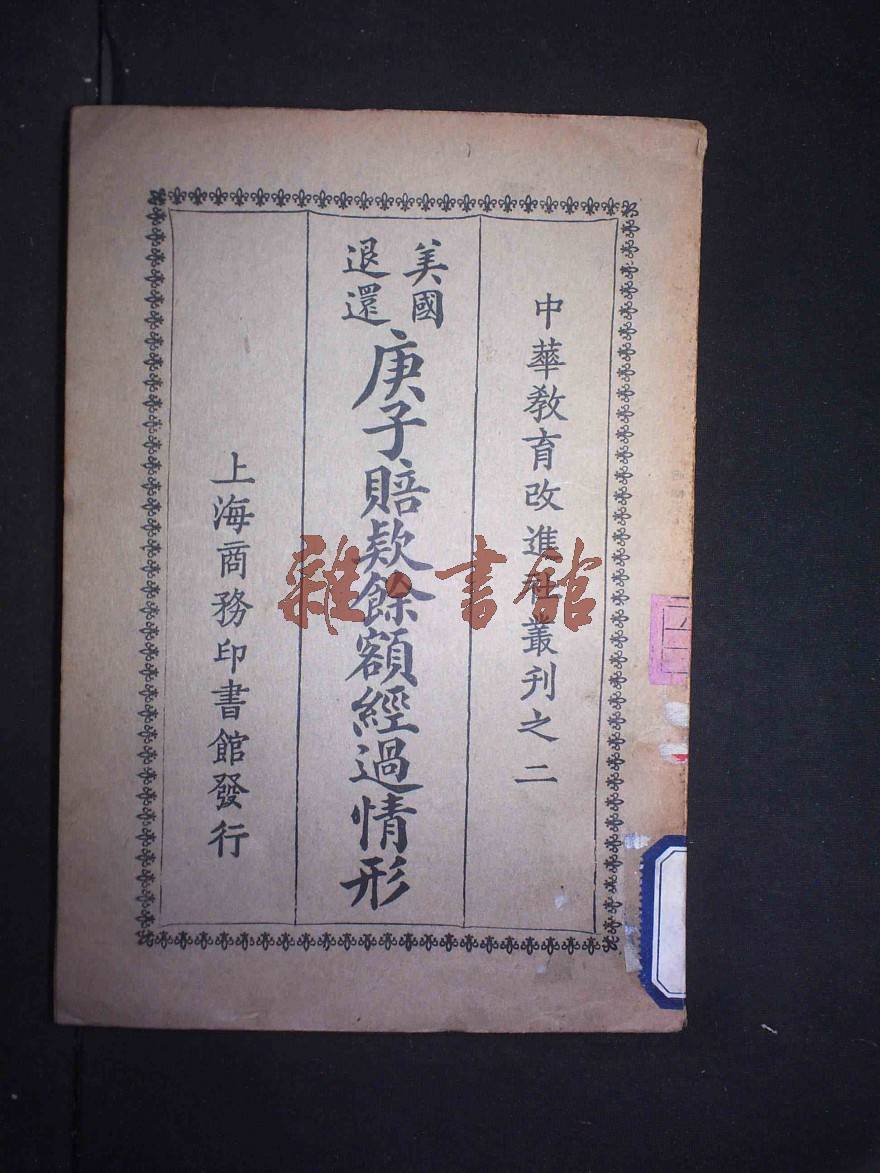 中華教育改進社叢刊之二
美國
退還
庚子賠款餘額經過情形
上海商務印書館發行
雜·書館